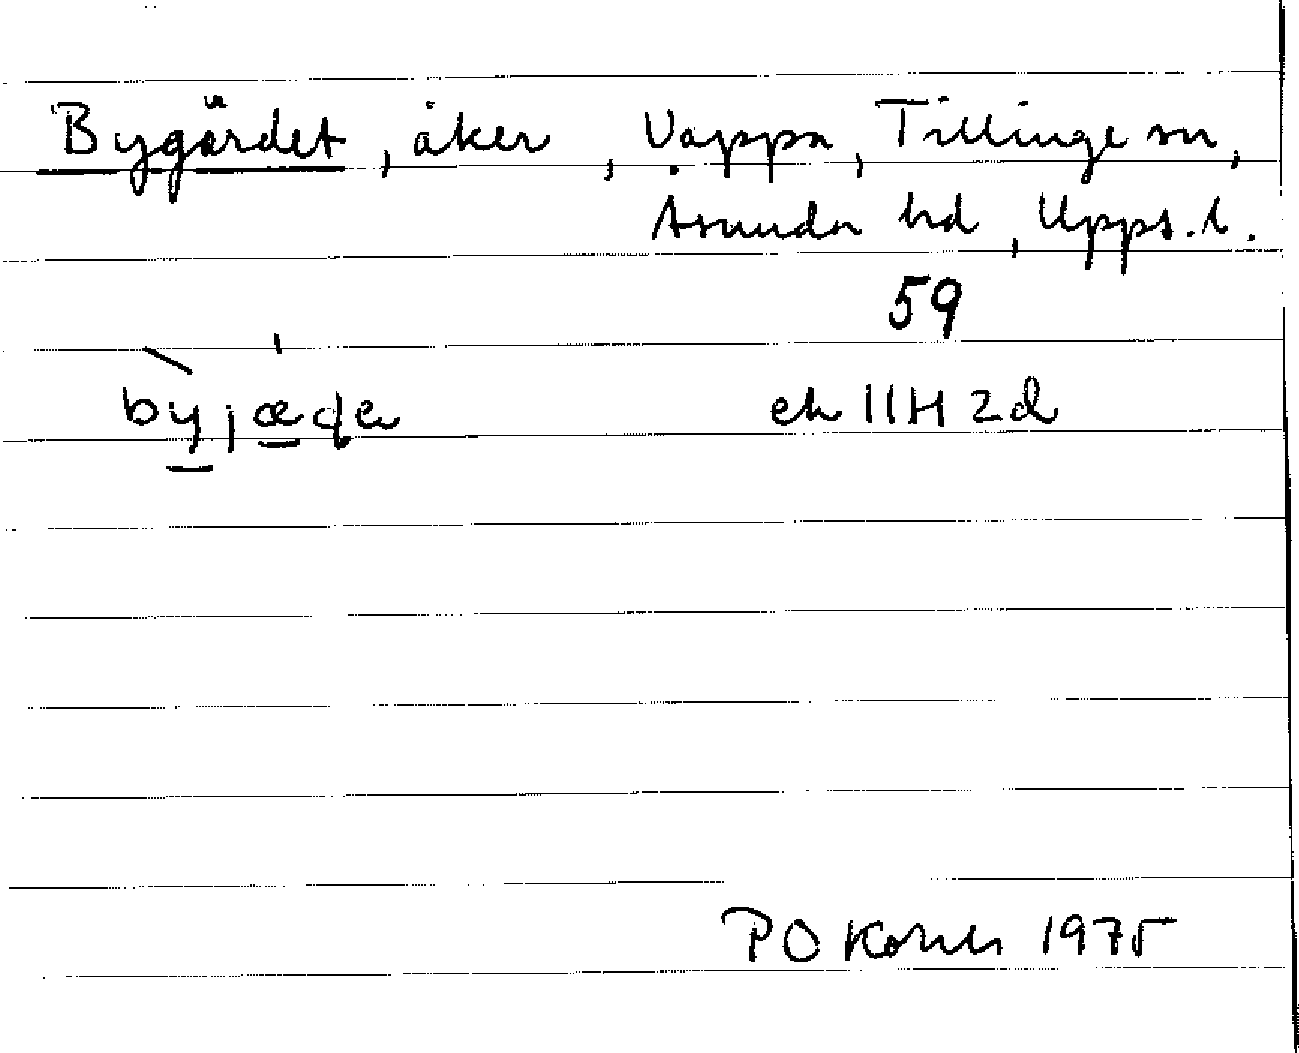 Bygärdet, åker, Vappa, Tillinge sn,
Åsunda hd, Upps. l.
59
ek 11H 2d
P O 1975